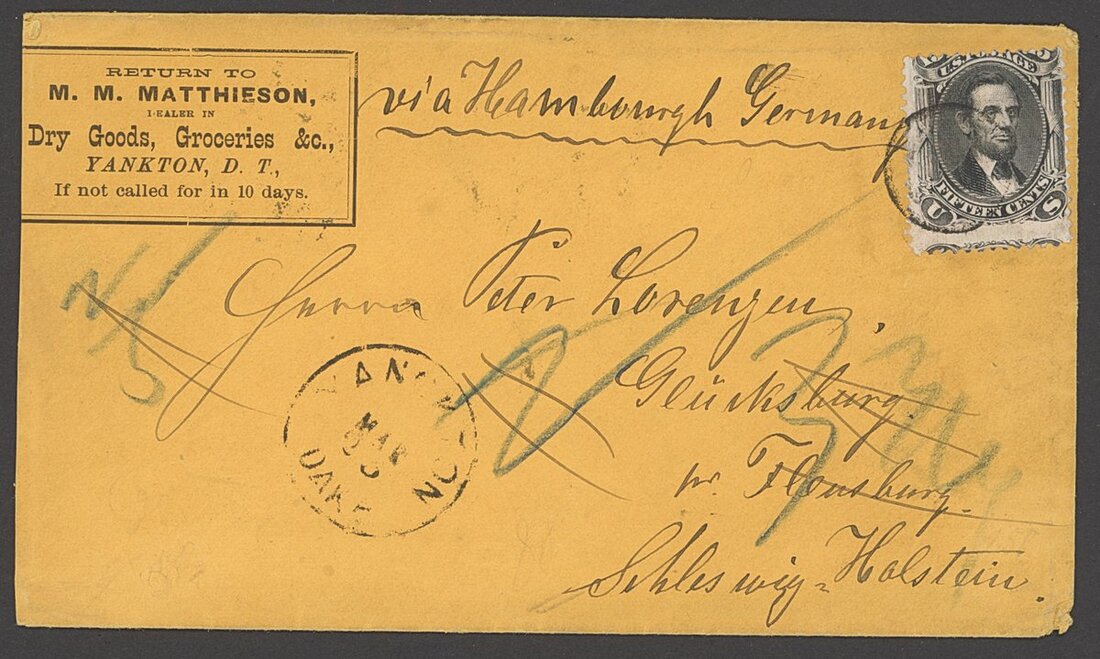 RETURN TO
M. M. MATTHIESON,
DEALER IN
Dry Goods, Groceries &c.,
YANKTON, D. T.,
If not called for in 10 days.
via Hambourgh Germany
U.S. POSTAGE
FIFTEEN CENTS
U S
Herrn Peter Lorenzen,
Glücksburg.
pr. Flensburg.
Schleswig=Holstein.
YANKTON
MAR
DAK.